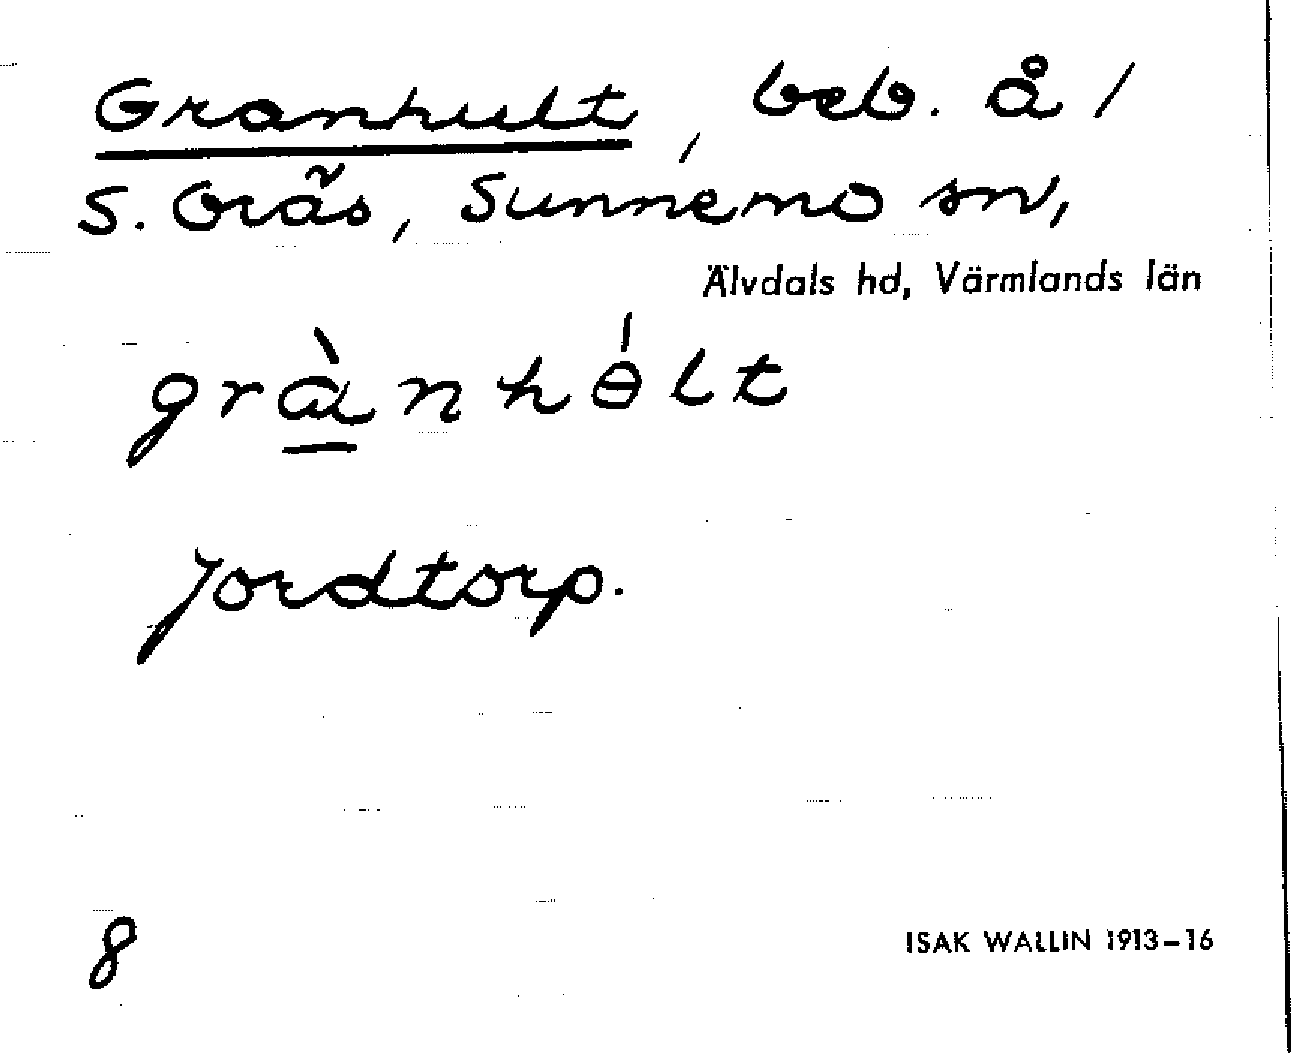 Granhult, beb. å /
S. Gräs, Sunnemo sn,
Älvdals hd, Värmlands län
grànhɵ́lt
Jordtorp.
8
ISAK WALLIN 1913–16